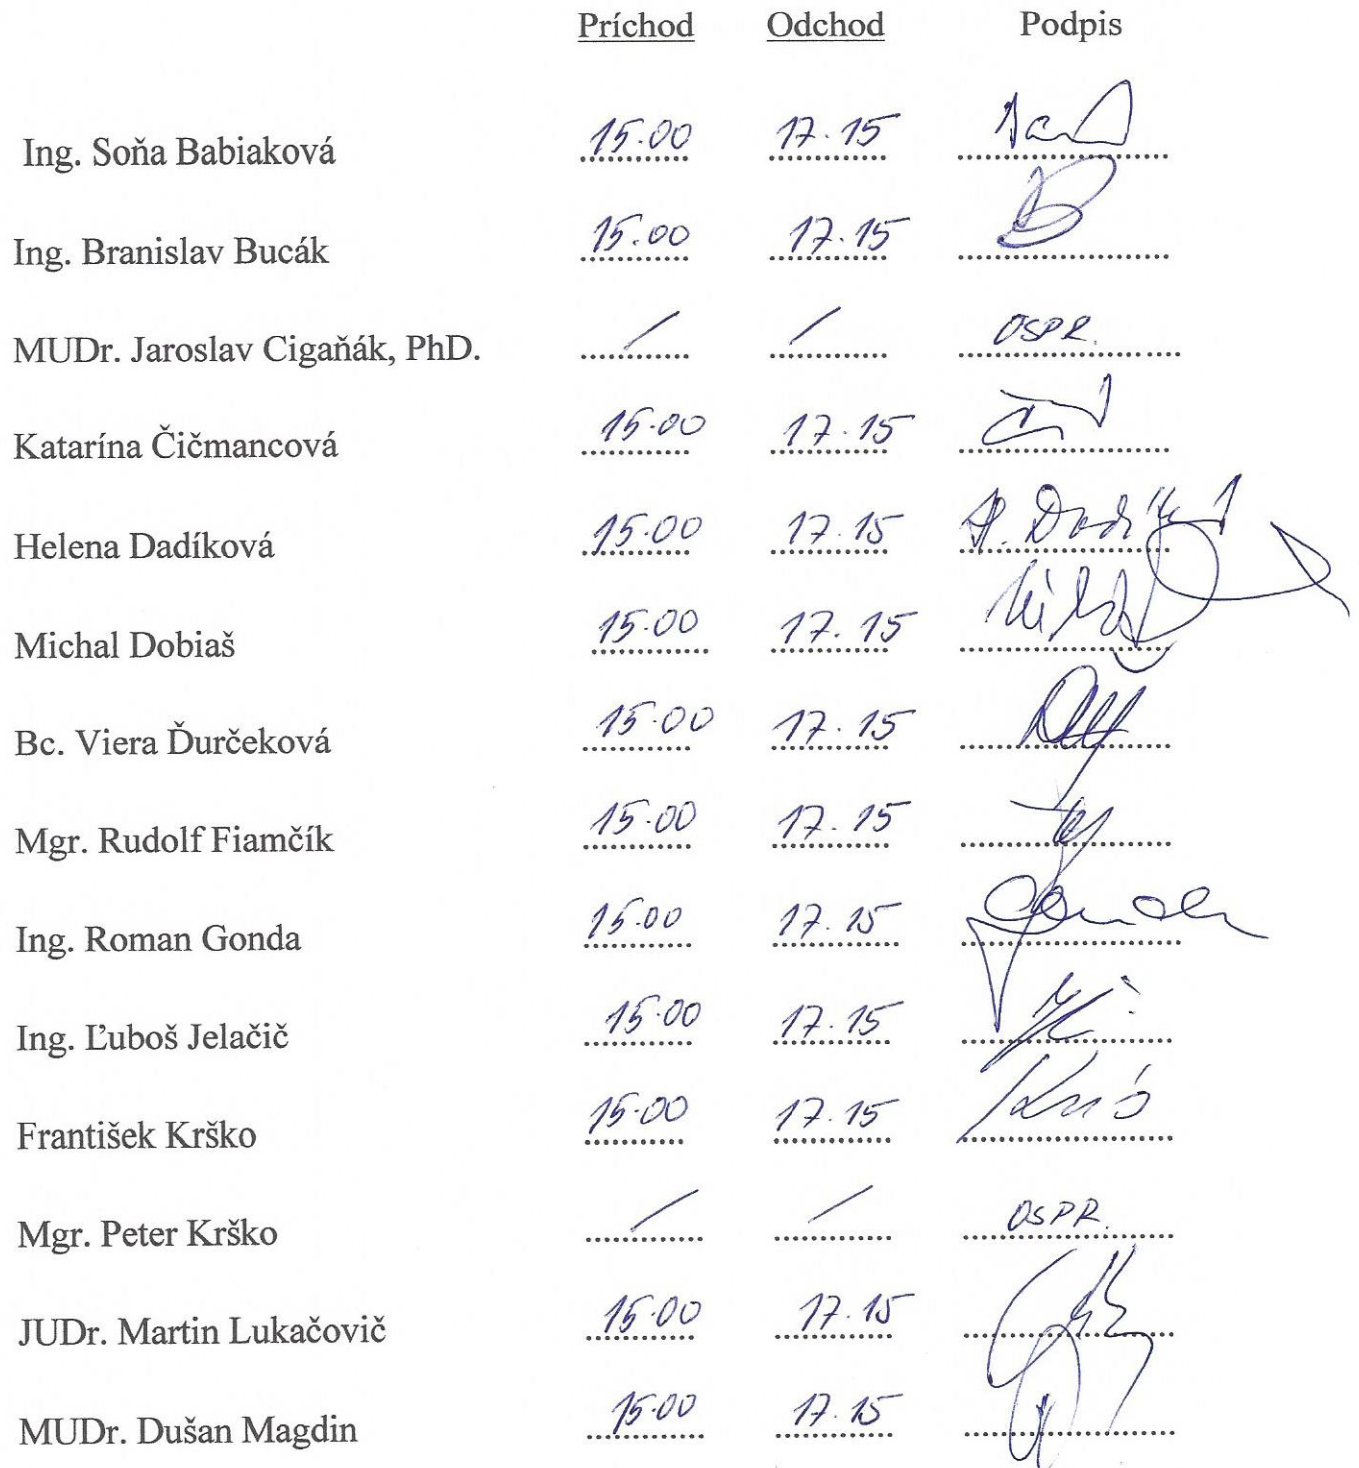 Príchod Odchod Podpis
Ing. Soňa Babiaková 15.00 17.15
Ing. Branislav Bucák 15.00 17.15
MUDr. Jaroslav Cigaňák, PhD. / / OSPR.
Katarína Čičmancová 15.00 17.15
Helena Dadíková 15.00 17.15
Michal Dobiaš 15.00 17.15
Bc. Viera Ďurčeková 15.00 17.15
Mgr. Rudolf Fiamčík 15.00 17.15
Ing. Roman Gonda 15.00 17.15
Ing. Ľuboš Jelačič 15.00 17.15
František Krško 15.00 17.15
Mgr. Peter Krško / / OSPR.
JUDr. Martin Lukačovič 15.00 17.15
MUDr. Dušan Magdin 15.00 17.15